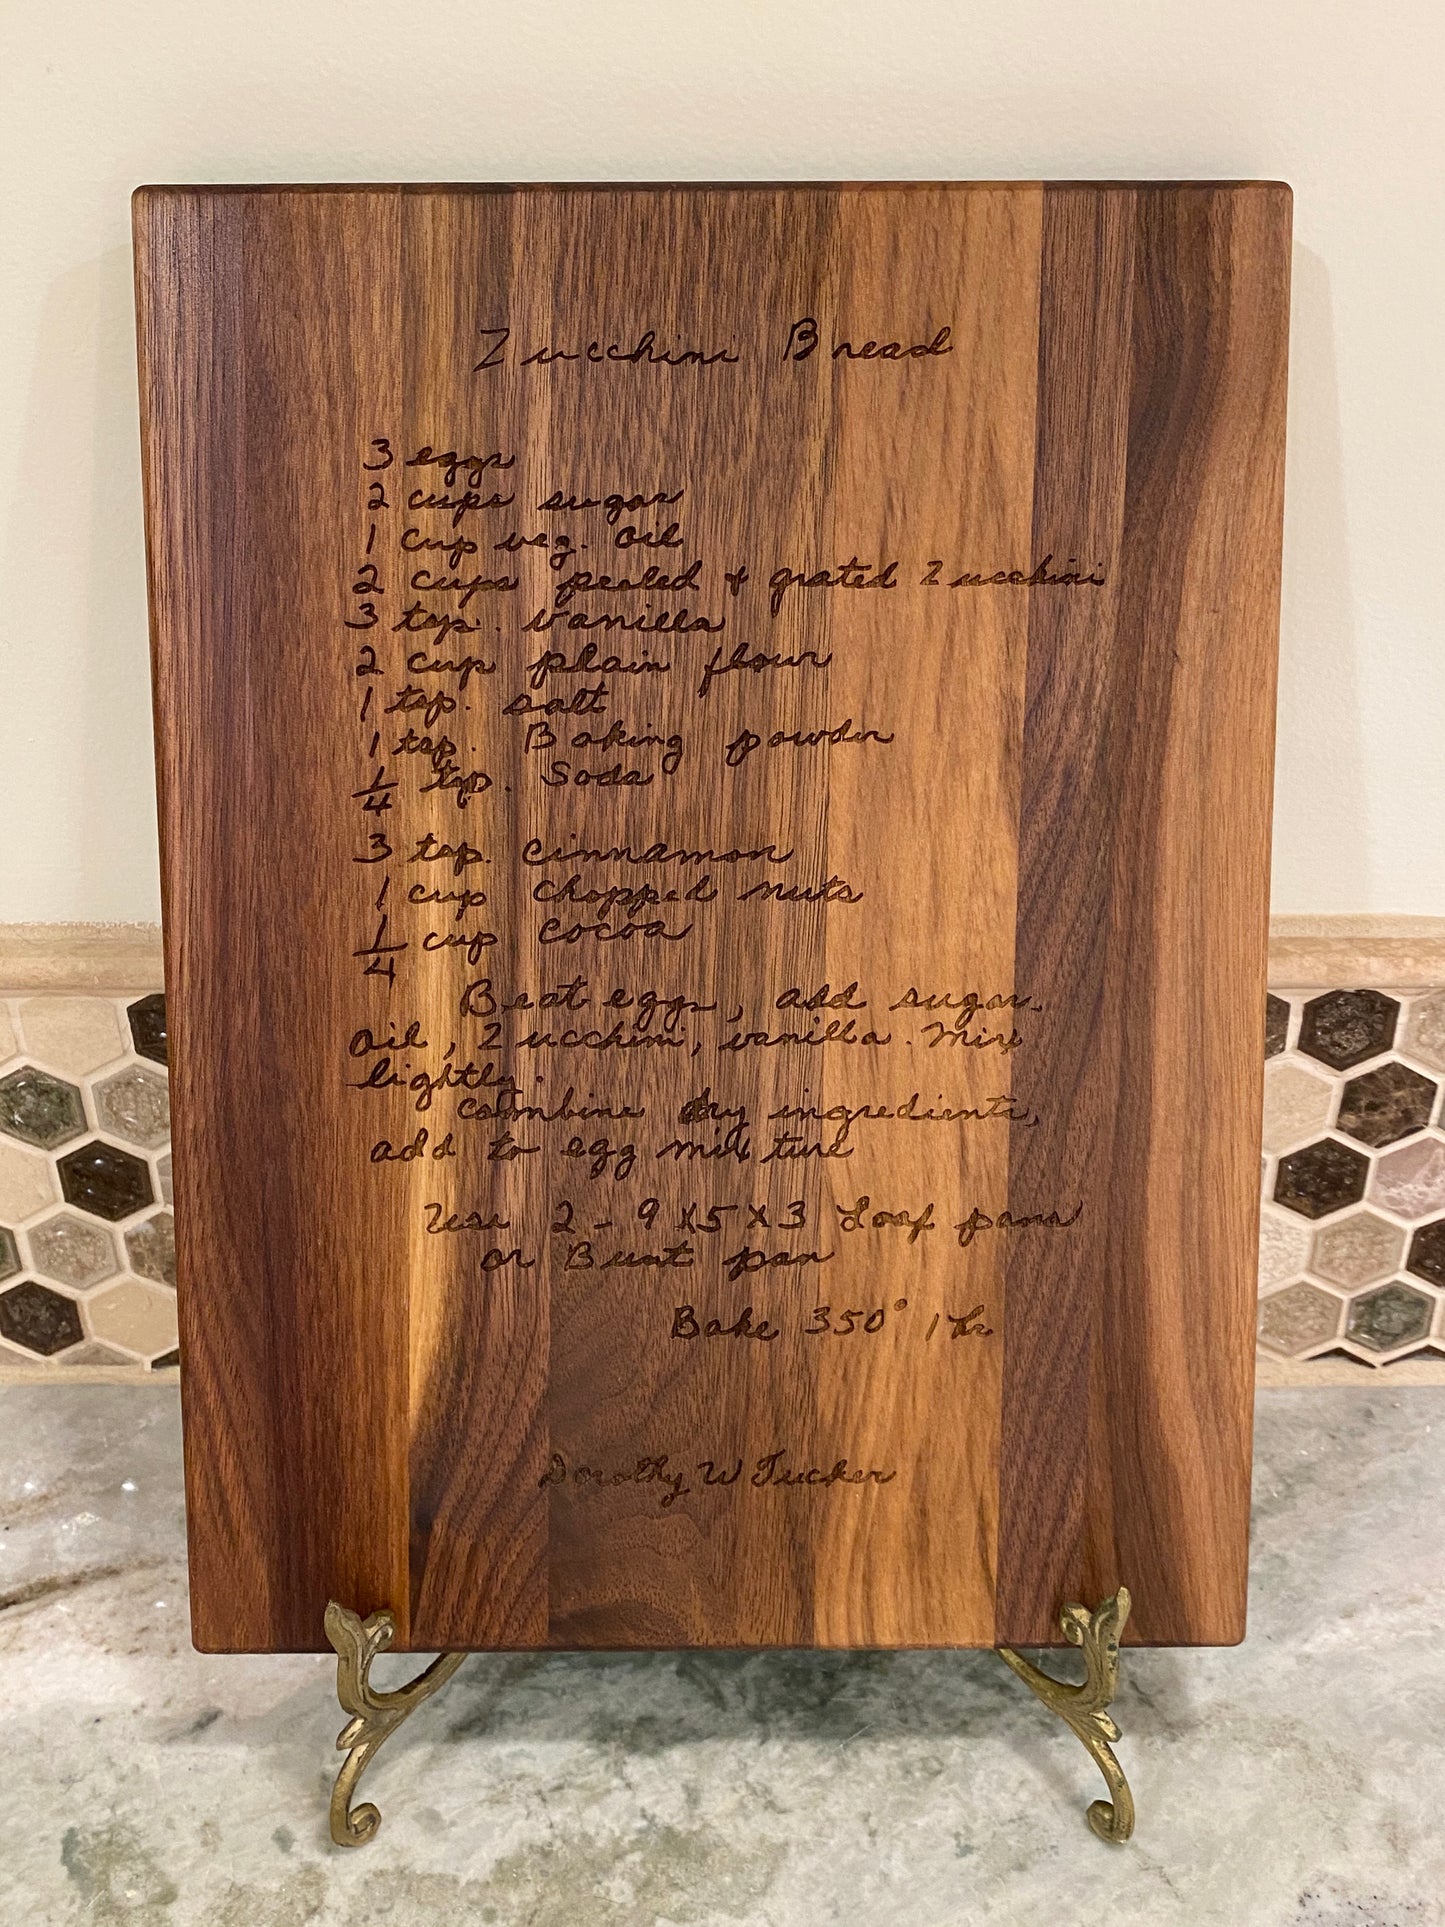 Zucchini Bread
3 eggs
2 cups sugar
1 cup veg. oil
2 cups pealed & grated Zucchini
3 tsp. vanilla
2 cup plain flour
1 tsp. salt
1 tsp. Baking powder
1/4 tsp. Soda
3 tsp. cinnamon
1 cup chopped nuts
1/4 cup cocoa
Beat eggs, add sugar.
oil, Zucchini, vanilla. Mix
lightly.
combine dry ingredients,
add to egg mixture
Use 2 - 9 x 5 x 3 Loaf pans
or Bunt pan
Bake 350° 1 hr
Dorothy W Tucker